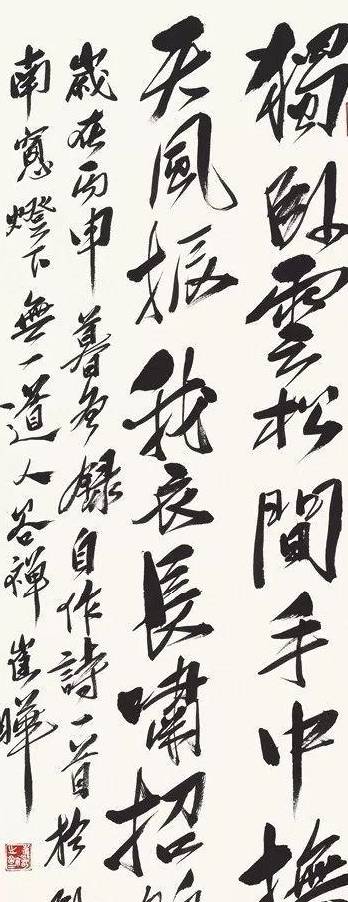 獨卧雲松間手中撫
天風振我衣長嘯招
歲在丙申暮春錄自作詩一首於
南窗燈下無一道人谷禪崔暉